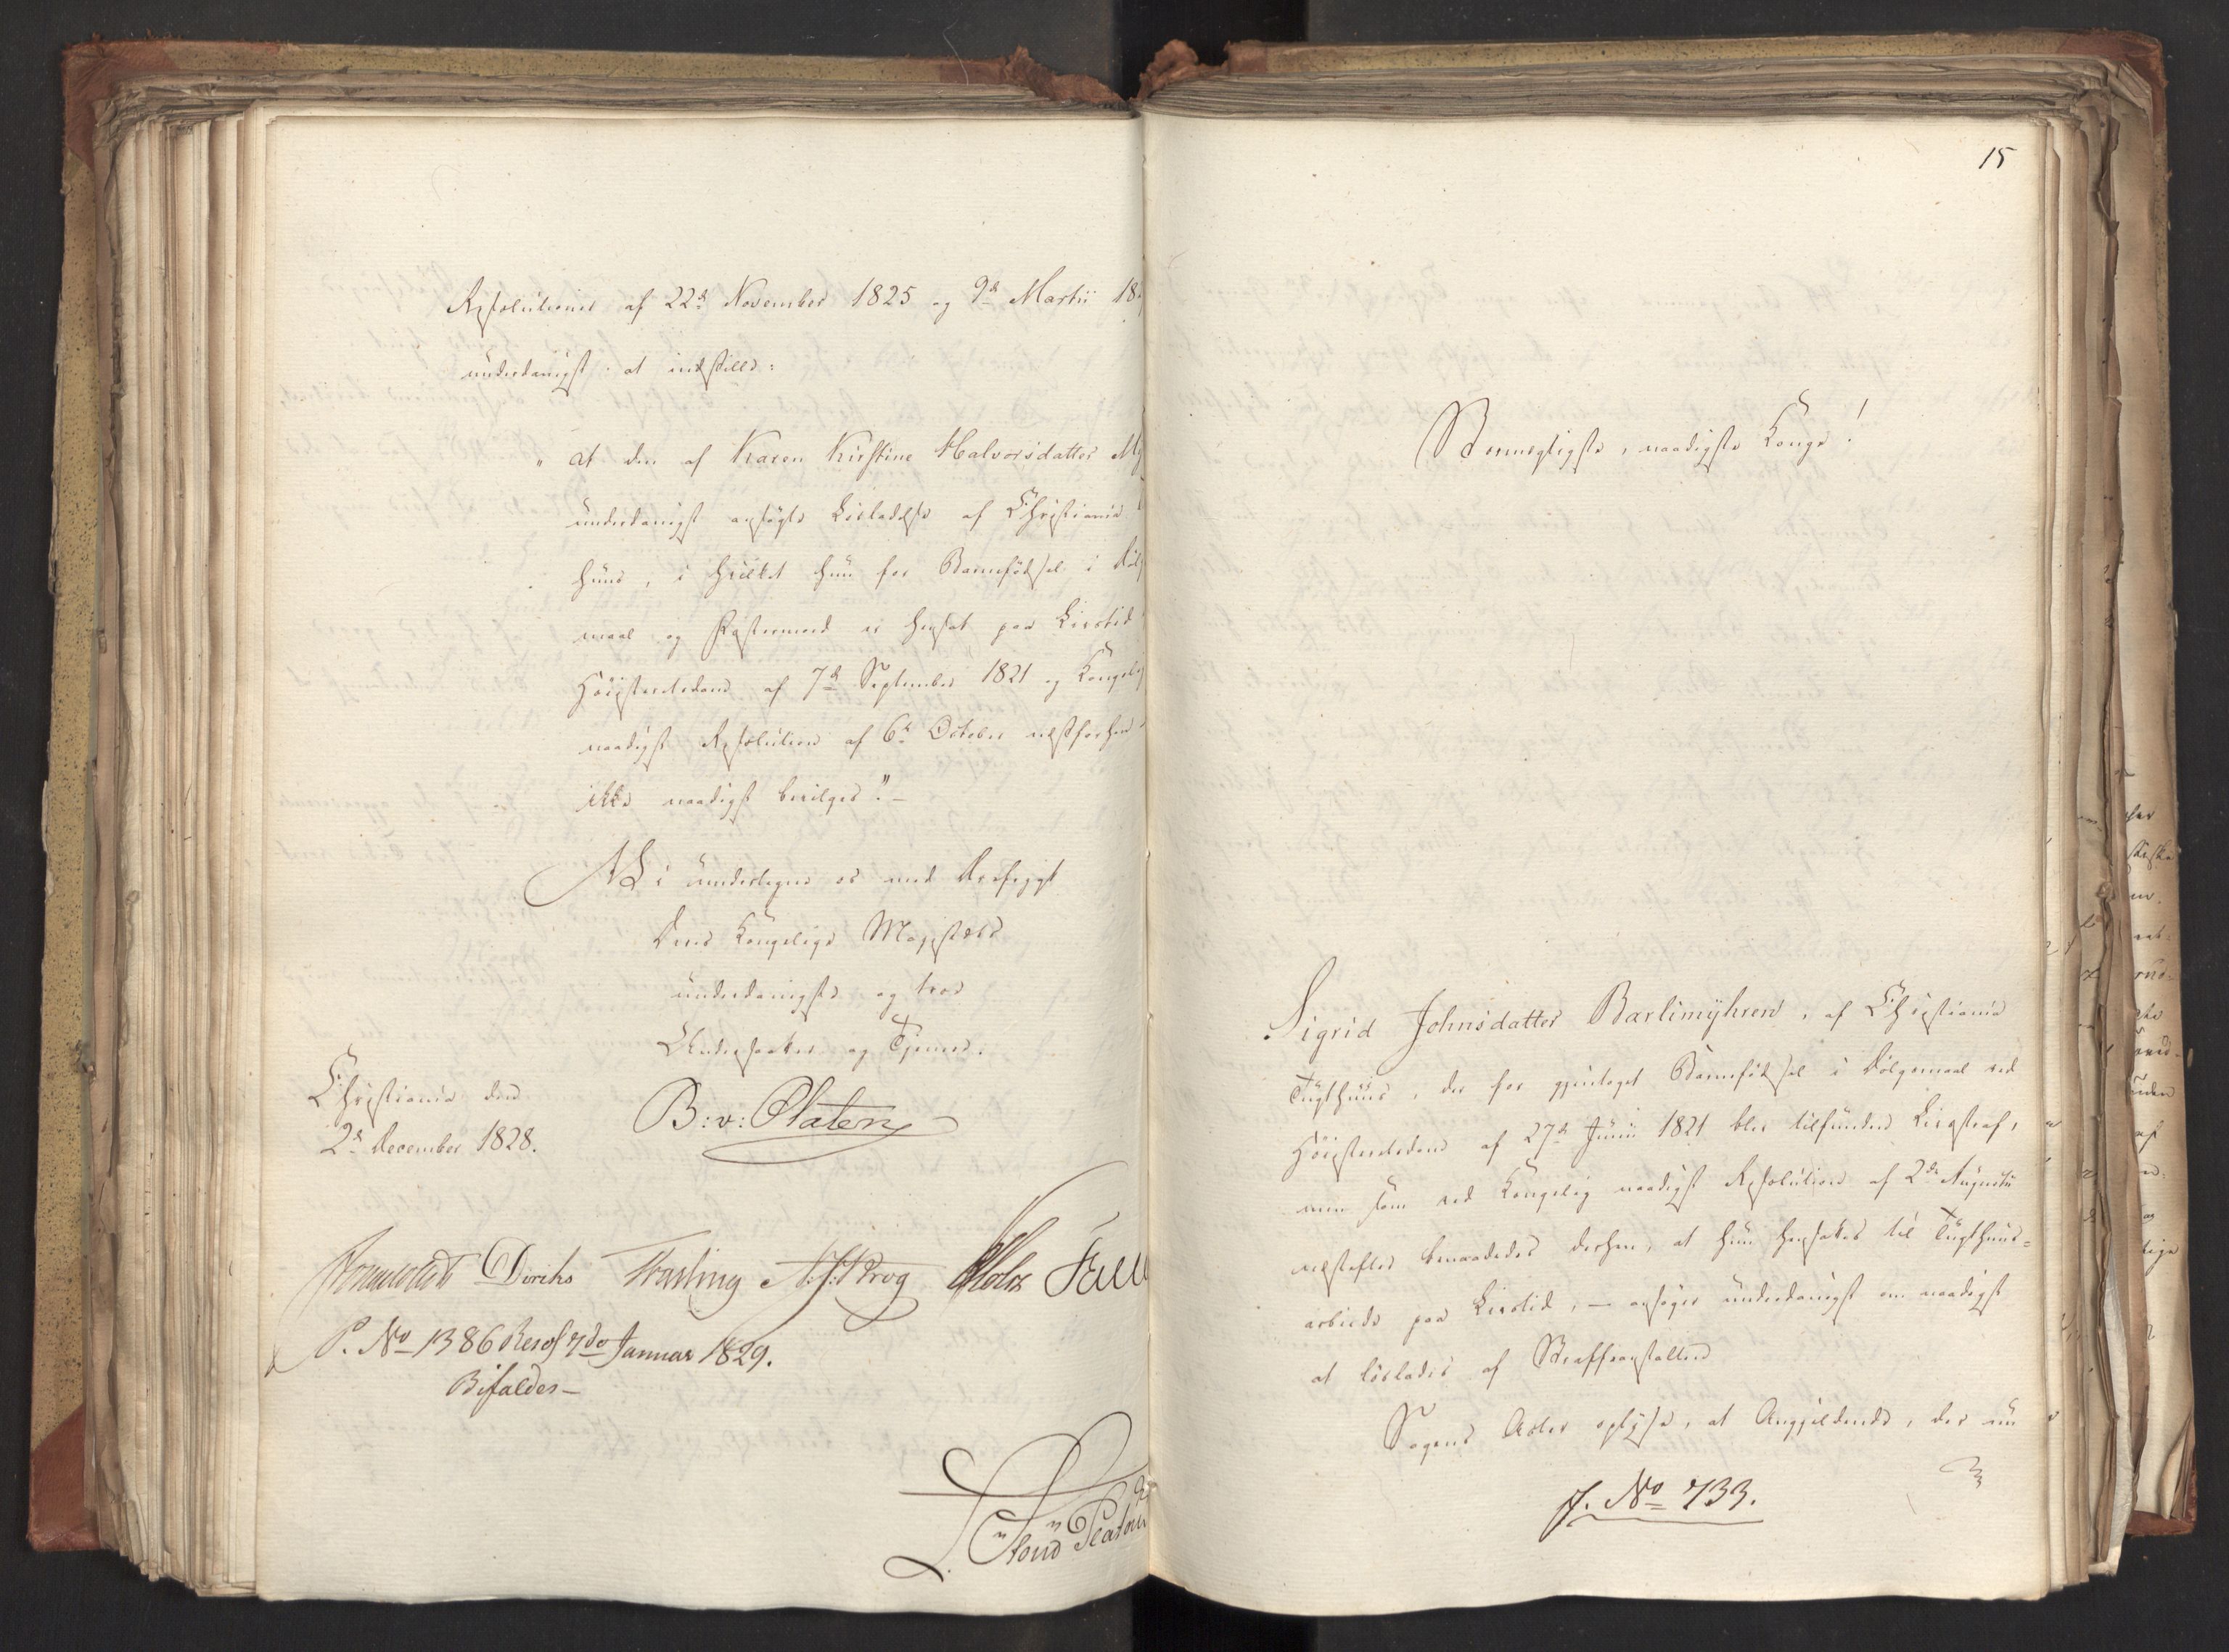 Resolutioner af 22de November 1825 og 9de Martii 18
underdanigst at indstille:
" at den af Karen Kirstine Halvorsdatter My
underdanigst ansøgte Løsladelse af Christiania
huus, i hvilket hun for Barnefødsel i Døl
maal og Fostermord er hensat paa Livstid
Høiesteretsdom af 7de September 1821 og Kongelig
naadigst Resolution af 6te October næstforhen
ikke naadigst bevilges". –
Vi undertegne os med Dyb
Deres Kongelige Majestæts
underdanigste og troe
Undersaatter og Tjenere.
Christiania den
2de December 1828.
B: v: Platen
Sommerfeldt Diriks Krog Holst Fasti
P. No 1386 Resol 7de Januar 1829.
Bifaldes –
15
Stormægtigste, naadigste Konge!
Sigrid Johnsdatter Barlimyhren, af Christiania
Tugthuus, der for gjentaget Barnefødsel i Dølgsmaal ved
Høiesteretsdom af 27de Junii 1821 blev tilfunden Livsstraf,
men som ved Kongelig naadigst Resolution af 2den Augusti
næstefter benaadedes derhen, at hun hensattes til Tugthuus=
arbeide paa Livstid, – ansøger underdanigst om naadigst
at løslades af Straffeanstalten
Sagens Acter oplyse, at Angjeldende, der nu
J. No 733.